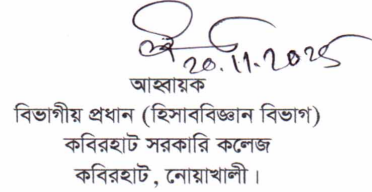 20.11.2025
আহবায়ক
বিভাগীয় প্রধান (হিসাববিজ্ঞান বিভাগ)
কবিরহাট সরকারি কলেজ
কবিরহাট, নোয়াখালী।